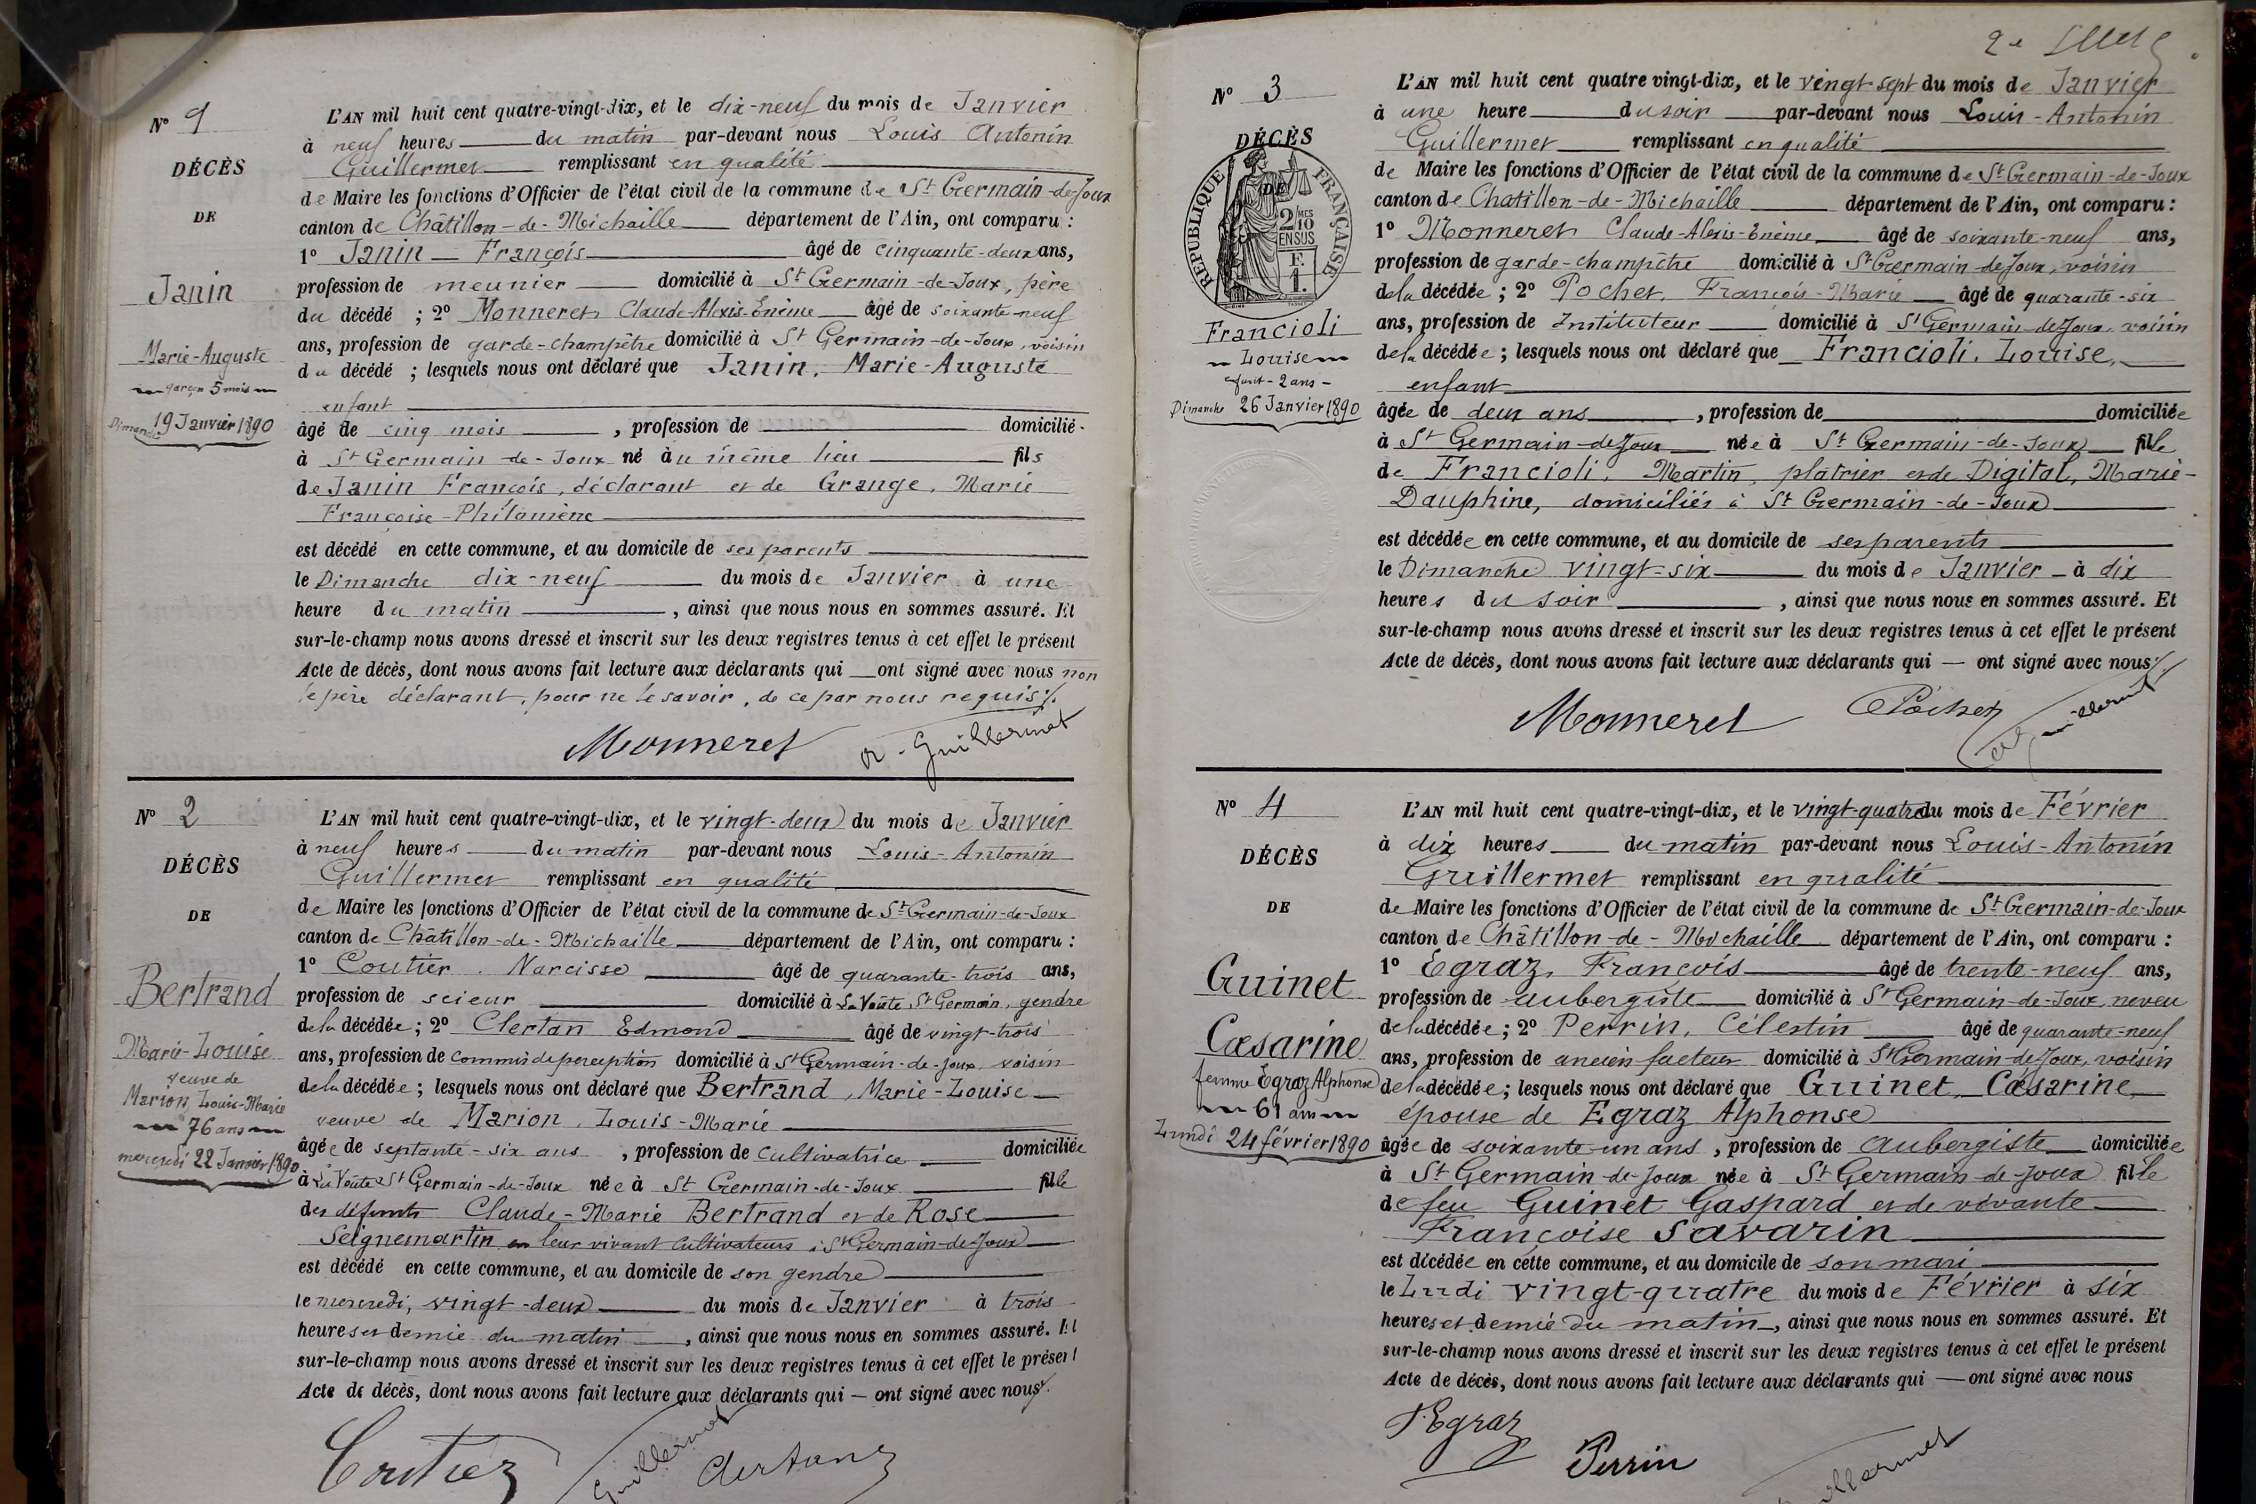 N° 1
DÉCÈS
DE
Janin
Marie-Auguste
garçon 5 mois
Dimanche 19 Janvier 1890
L'AN mil huit cent quatre-vingt-dix, et le dix-neuf du mois de Janvier
à neuf heures du matin par-devant nous Louis Antonin
Guillermet remplissant en qualité
de Maire les fonctions d'Officier de l'état civil de la commune de St Germain-de-Joux
canton de Châtillon-de-Michaille département de l'Ain, ont comparu :
1° Janin François âgé de cinquante-deux ans,
profession de meunier domicilié à St Germain-de-Joux, père
du décédé ; 2° Monneret Claude-Alexis-Enème âgé de soixante-neuf
ans, profession de garde-champêtre domicilié à St Germain-de-Joux, voisin
du décédé ; lesquels nous ont déclaré que Janin, Marie-Auguste
enfant
âgé de cinq mois , profession de domicilié
à St Germain-de-Joux né au même lieu fils
de Janin François, déclarant et de Grange, Marie
Françoise-Philomène
est décédé en cette commune, et au domicile de ses parents
le Dimanche dix-neuf du mois de Janvier à une
heure du matin , ainsi que nous nous en sommes assuré. Et
sur-le-champ nous avons dressé et inscrit sur les deux registres tenus à cet effet le présent
Acte de décès, dont nous avons fait lecture aux déclarants qui ont signé avec nous non
le père déclarant, pour ne le savoir, de ce par nous requis ;/.
Monneret A. Guillermet
N° 2
DÉCÈS
DE
Bertrand
Marie-Louise
veuve de
Marion, Louis-Marie
76 ans
mercredi 22 Janvier 1890
L'AN mil huit cent quatre-vingt-dix, et le vingt-deux du mois de Janvier
à neuf heures du matin par-devant nous Louis-Antonin
Guillermet remplissant en qualité
de Maire les fonctions d'Officier de l'état civil de la commune de St Germain-de-Joux
canton de Châtillon-de-Michaille département de l'Ain, ont comparu :
1° Coutier, Narcisse âgé de quarante-trois ans,
profession de scieur domicilié à La Voûte, St Germain, gendre
de la décédée ; 2° Clertan Edmond âgé de vingt-trois
ans, profession de commis de perception domicilié à St Germain-de-Joux voisin
de la décédée ; lesquels nous ont déclaré que Bertrand, Marie-Louise
veuve de Marion, Louis-Marie
âgée de septante-six ans , profession de cultivatrice domiciliée
à La Voûte St Germain-de-Joux née à St Germain-de-Joux fille
des défunts Claude-Marie Bertrand et de Rose
Seignemartin en leur vivant cultivateurs à St Germain-de-Joux
est décédé en cette commune, et au domicile de son gendre
le mercredi, vingt-deux du mois de Janvier à trois
heures et demie du matin , ainsi que nous nous en sommes assuré. Et
sur-le-champ nous avons dressé et inscrit sur les deux registres tenus à cet effet le présent
Acte de décès, dont nous avons fait lecture aux déclarants qui — ont signé avec nous.
Coutier Guillermet Clertan
2e
N° 3
DÉCÈS
DE
RÉPUBLIQUE FRANÇAISE
2/10
EN SUS
F.
1.
Francioli
Louise
enfant - 2 ans -
Dimanche 26 Janvier 1890
L'AN mil huit cent quatre vingt-dix, et le vingt-sept du mois de Janvier
à une heure du soir par-devant nous Louis-Antonin
Guillermet remplissant en qualité
de Maire les fonctions d'Officier de l'état civil de la commune de St Germain-de-Joux
canton de Chatillon-de-Michaille département de l'Ain, ont comparu :
1° Monneret Claude-Alexis-Enème âgé de soixante-neuf ans,
profession de garde-champêtre domicilié à St Germain-de-Joux, voisin
de la décédée ; 2° Pochet, François-Marie âgé de quarante-six
ans, profession de Instituteur domicilié à St Germain-de-Joux, voisin
de la décédée ; lesquels nous ont déclaré que Francioli, Louise,
enfant
âgée de deux ans , profession de domiciliée
à St Germain-de-Joux née à St Germain-de-Joux fille
de Francioli, Martin, platrier et de Digital, Marie-
Dauphine, domiciliés à St Germain-de-Joux
est décédée en cette commune, et au domicile de ses parents
le Dimanche vingt-six du mois de Janvier à dix
heures du soir , ainsi que nous nous en sommes assuré. Et
sur-le-champ nous avons dressé et inscrit sur les deux registres tenus à cet effet le présent
Acte de décès, dont nous avons fait lecture aux déclarants qui — ont signé avec nous ;/.
Monneret Pochet Guillermet
N° 4
DÉCÈS
DE
Guinet
Cæsarine
femme Egraz Alphonse
61 ans
Lundi 24 février 1890
L'AN mil huit cent quatre-vingt-dix, et le vingt-quatre du mois de Février
à dix heures du matin par-devant nous Louis-Antonin
Guillermet remplissant en qualité
de Maire les fonctions d'Officier de l'état civil de la commune de St Germain-de-Joux
canton de Châtillon-de-Michaille département de l'Ain, ont comparu :
1° Egraz, François âgé de trente-neuf ans,
profession de aubergiste domicilié à St Germain-de-Joux, neveu
de la décédée ; 2° Perrin, Célestin âgé de quarante-neuf
ans, profession de ancien facteur domicilié à St Germain-de-Joux, voisin
de la décédée ; lesquels nous ont déclaré que Guinet, Cæsarine,
épouse de Egraz Alphonse
âgée de soixante-un ans , profession de aubergiste domiciliée
à St Germain-de-Joux née à St Germain-de-Joux fille
de feu Guinet Gaspard et de vivante
Françoise Savarin
est décédée en cette commune, et au domicile de son mari
le Lundi vingt-quatre du mois de Février à six
heures et demie du matin, ainsi que nous nous en sommes assuré. Et
sur-le-champ nous avons dressé et inscrit sur les deux registres tenus à cet effet le présent
Acte de décès, dont nous avons fait lecture aux déclarants qui — ont signé avec nous
F. Egraz Perrin Guillermet